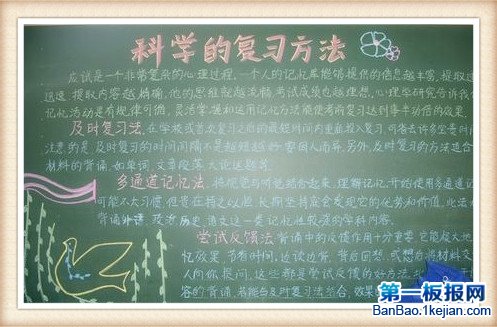 科学的复习方法
应试是一个非常复杂的心理过程，一个人的记忆库能够提供的信息越丰富，提取过
迅速，提取内容越精确，他的思维就越流畅，考试成绩也越理想，心理学研究告诉我们
记忆活动是有规律可循，灵活掌握和运用记忆方法能使考前复习达到事半功倍的效果。
及时复习法，在学校或首次复习之后的最短时间内重新投入复习，可省去许多
注意的是及时复习的时间间隔不是越短越好，要因人而异，另外及时复习的方法适合
材料的背诵，如单词，文章段落，大论述题等。
多通道记忆法，将视觉与听觉结合起来，理解记忆，开始使用多通道记
可能不大习惯，但贵在持之以恒，长期坚持应会发现它的优势和价值，此法
背诵外语，政治，历史，语文这一类记忆性较强的学科内容。
尝试反馈法 背诵中的反馈作用十分重要，它能极大地
忆效果，节省时间，边读边背，背后回想，或然后将材料交
人向你提问，这些都是尝试反馈的好方法，
容的背诵，若能与及时复习法结合，效果
第一板报网
BanBao.1kejian.com